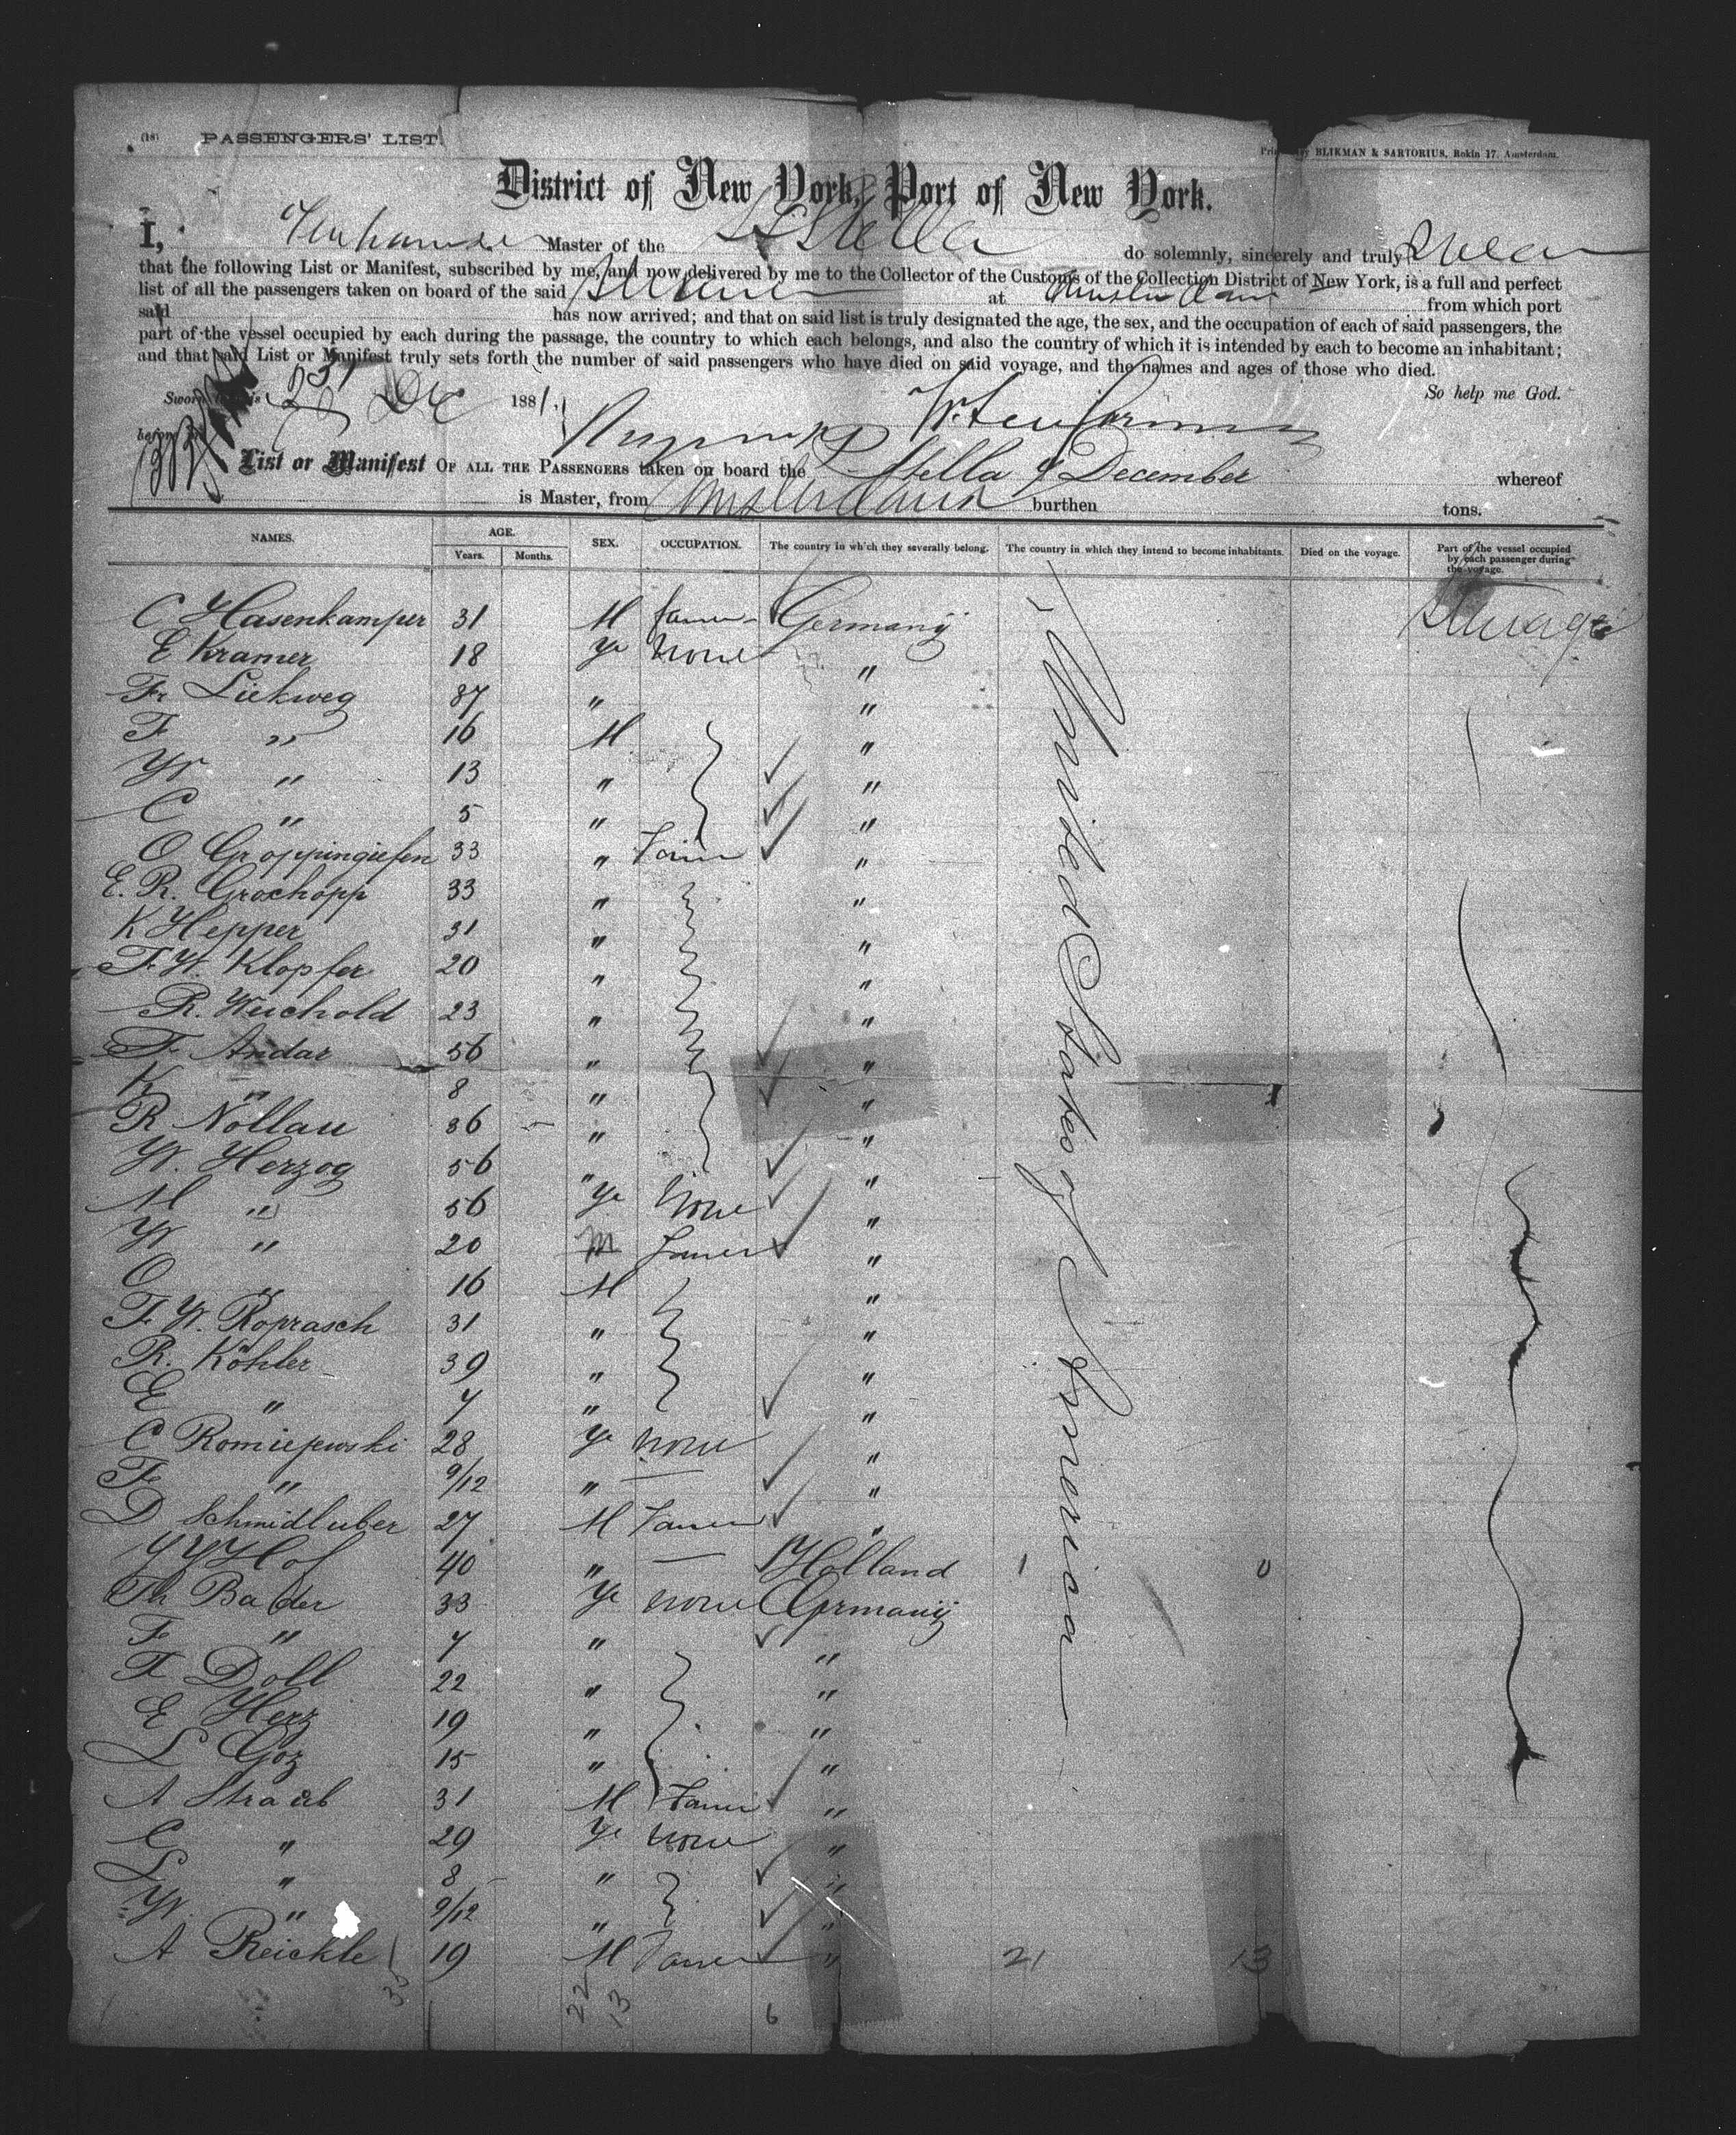 (18) PASSENGERS' LIST.
BLIKMAN & SARTORIUS, Rokin 17, Amsterdam.
District of New York, Port of New York.
I, Master of the SS Stella do solemnly, sincerely and truly swear
that the following List or Manifest, subscribed by me, and now delivered by me to the Collector of the Customs of the Collection District of New York, is a full and perfect
list of all the passengers taken on board of the said Steamer at Amsterdam from which port
said has now arrived; and that on said list is truly designated the age, the sex, and the occupation of each of said passengers, the
part of the vessel occupied by each during the passage, the country to which each belongs, and also the country of which it is intended by each to become an inhabitant;
and that said List or Manifest truly sets forth the number of said passengers who have died on said voyage, and the names and ages of those who died.
So help me God.
Sworn Dec 1881.
before
List or Manifest OF ALL THE PASSENGERS taken on board the Stella 9 December whereof
is Master, from Amsterdam burthen tons.
NAMES. AGE. SEX. OCCUPATION. The country in wh'ch they severally belong. The country in which they intend to become inhabitants. Died on the voyage. Part of the vessel occupied by each passenger during the voyage.
Years. Months.
C Hasenkamper 31 M farmer Germany Steerage
E Kramer 18 Fe none "
Fr Liekweg 37 " "
F " 16 M "
W " 13 " "
C " 5 " "
O Groppingiefen 33 " Farmer "
E. R. Grochopp 33 " "
K Hepper 31 " "
F. W. Klopfer 20 " "
R. Weichold 23 " "
F Andar 56 " "
K " 8 " "
R Nollau 36 " "
W. Herzog 56 " "
M " 56 Fe None "
W " 20 M Farmer "
O " 16 M "
F. W. Roprasch 31 " "
R. Köhler 39 " "
E " 7 " "
C Romiejewski 28 Fe none "
F " 9/12 " "
D Schmidluber 27 M Farmer "
Hof 40 " — Holland 1 0
Th Bader 33 Fe none Germany
F " 7 " "
F Doll 22 " "
E Herz 19 " "
L Göz 15 " "
A Straub 31 M Farmer "
C " 29 Fe none "
L " 8 " "
W. " 9/12 " "
A Reickle 19 M Farmer " 21 13
United States of America
35 22 13 6